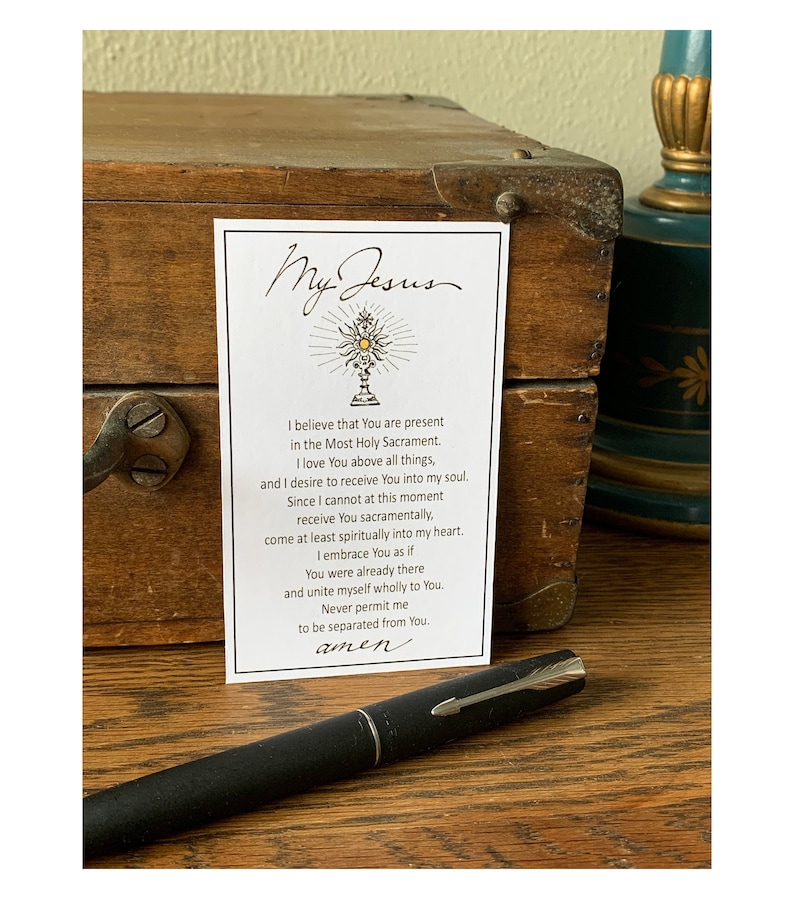 My Jesus
I believe that You are present
in the Most Holy Sacrament.
I love You above all things,
and I desire to receive You into my soul.
Since I cannot at this moment
receive You sacramentally,
come at least spiritually into my heart.
I embrace You as if
You were already there
and unite myself wholly to You.
Never permit me
to be separated from You.
amen